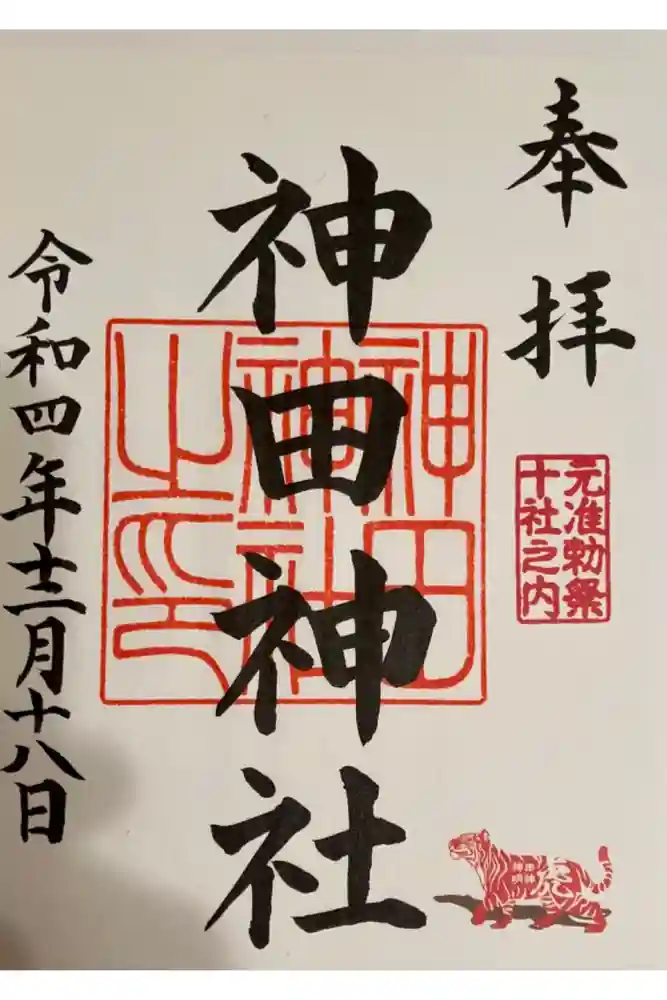 奉拝
元准勅祭
十社之内
神田神社
神田
神社
之印
令和四年十二月十八日
虎